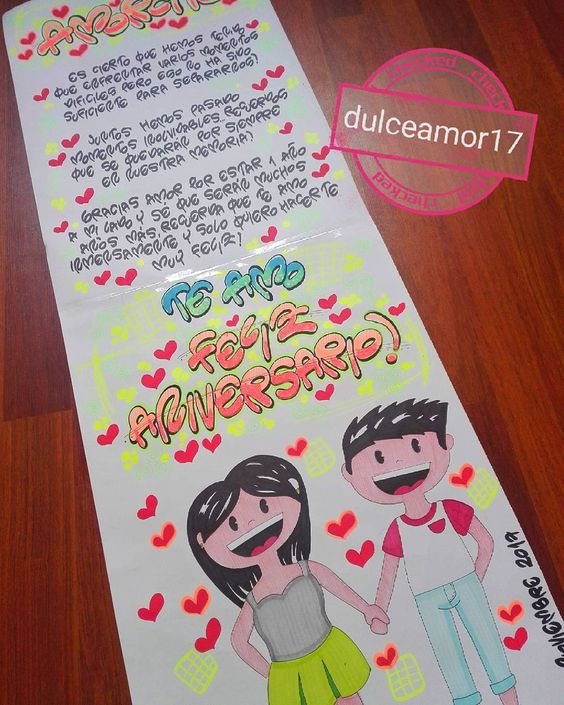 AMORCITO
ES CIERTO QUE HEMOS TENIDO
QUE ENFRENTAR VARIOS MOMENTOS
DIFICILES PERO ESO NO HA SIDO
SUFICIENTE PARA SEPARARNOS!
JUNTOS HEMOS PASADO
MOMENTOS INOLVIDABLES. RECUERDOS
QUE SE QUEDARAN POR SIEMPRE
EN NUESTRA MEMORIA!
GRACIAS AMOR POR ESTAR 1 AÑO
A MI LADO Y SE QUE SERAN MUCHOS
AÑOS MAS, RECUERDA QUE TE AMO
INMENSAMENTE Y SOLO QUIERO HACERTE
MUY FELIZ!
TE AMO
FELIZ
ANIVERSARIO!
NOVIEMBRE 2019
checked
dulceamor17
checked